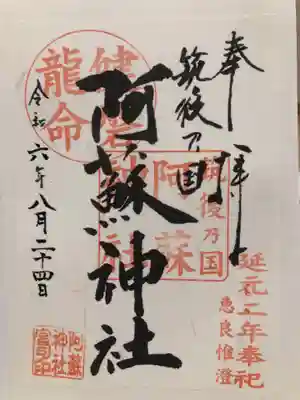 奉拝
筑後乃国
阿蘇神社
令和六年八月二十四日
健磐龍命
筑後乃国
阿蘇
神社
延元二年奉祀
恵良惟澄
阿蘇
神社
宮司印